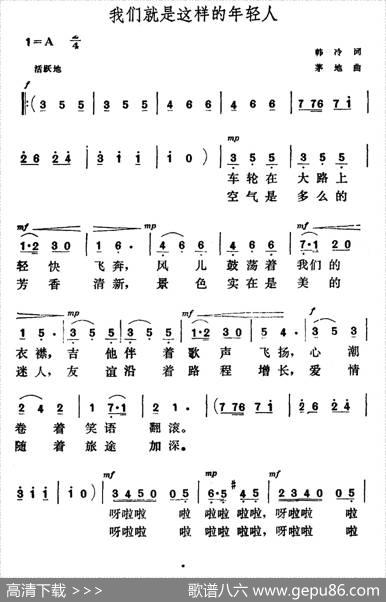 我们就是这样的年轻人
1=A 2/4
韩冷 词
活跃地
茅地 曲
f
‖:(3 5 5 | 3 5 5 | 4 6 6 | 4 6 6 | 7 76 7 1 |
mp
2 6 2 4 | 3 1 1 | 1 0 ) | 3 5 5 | 3 5 5 |
车轮在 大路上
空气是 多么的
mf mp
1·2 3 0 | 1 6· | 4 6 6 | 4 6 6 | 7·1 2 0 |
轻快 飞奔, 风儿 鼓荡着 我们的
芳香 清新, 景色 实在是 美的
mp mf f
1 5· | 3 5 5 | 3 5 5 | 1·2 3 0 | 1 6· | 3 5 3 |
衣襟, 吉他伴着歌声飞扬, 心潮
迷人, 友谊沿着路程增长, 爱情
2 4 2 | 1 7·1 | 2 1· | (7 76 7 1 | 2 6 2 4 |
卷着笑语翻滚。
随着旅途加深。
mf mp mf
3 1 1 | 1 0 ) | 3450 0 5 | 6·5 #4 5 | 2340 0 5 |
呀啦啦 啦 啦啦啦啦 呀啦啦 啦
呀啦啦 啦 啦啦啦啦, 呀啦啦 啦
高清下载 >>> 歌谱八六 www.gepu86.com